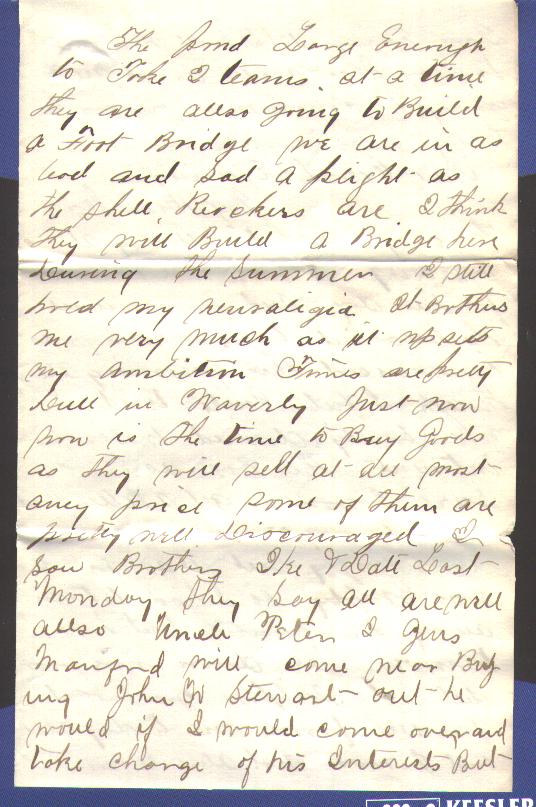 The pond Large Enough
to Take 2 teams at a time
they are allso going to Build
a Foot Bridge we are in as
bad and sad a plight as
the shell Rockers are I think
they will Build a Bridge here
during the Summer I still
hold my neuraligia It Bothers
me very much as it upsets
my ambition Times are pretty
dull in Waverly Just now
now is the time to Buy Goods
as they will sell at all most
aney price some of them are
pretty well discouraged I
saw Brothers Ike & Last
Monday they Say all are well
allso Uncle Peter I
Manford will come near Buy
ing John W Stewart out he
would if I would come over and
take charge of his Interests But
KEESLER